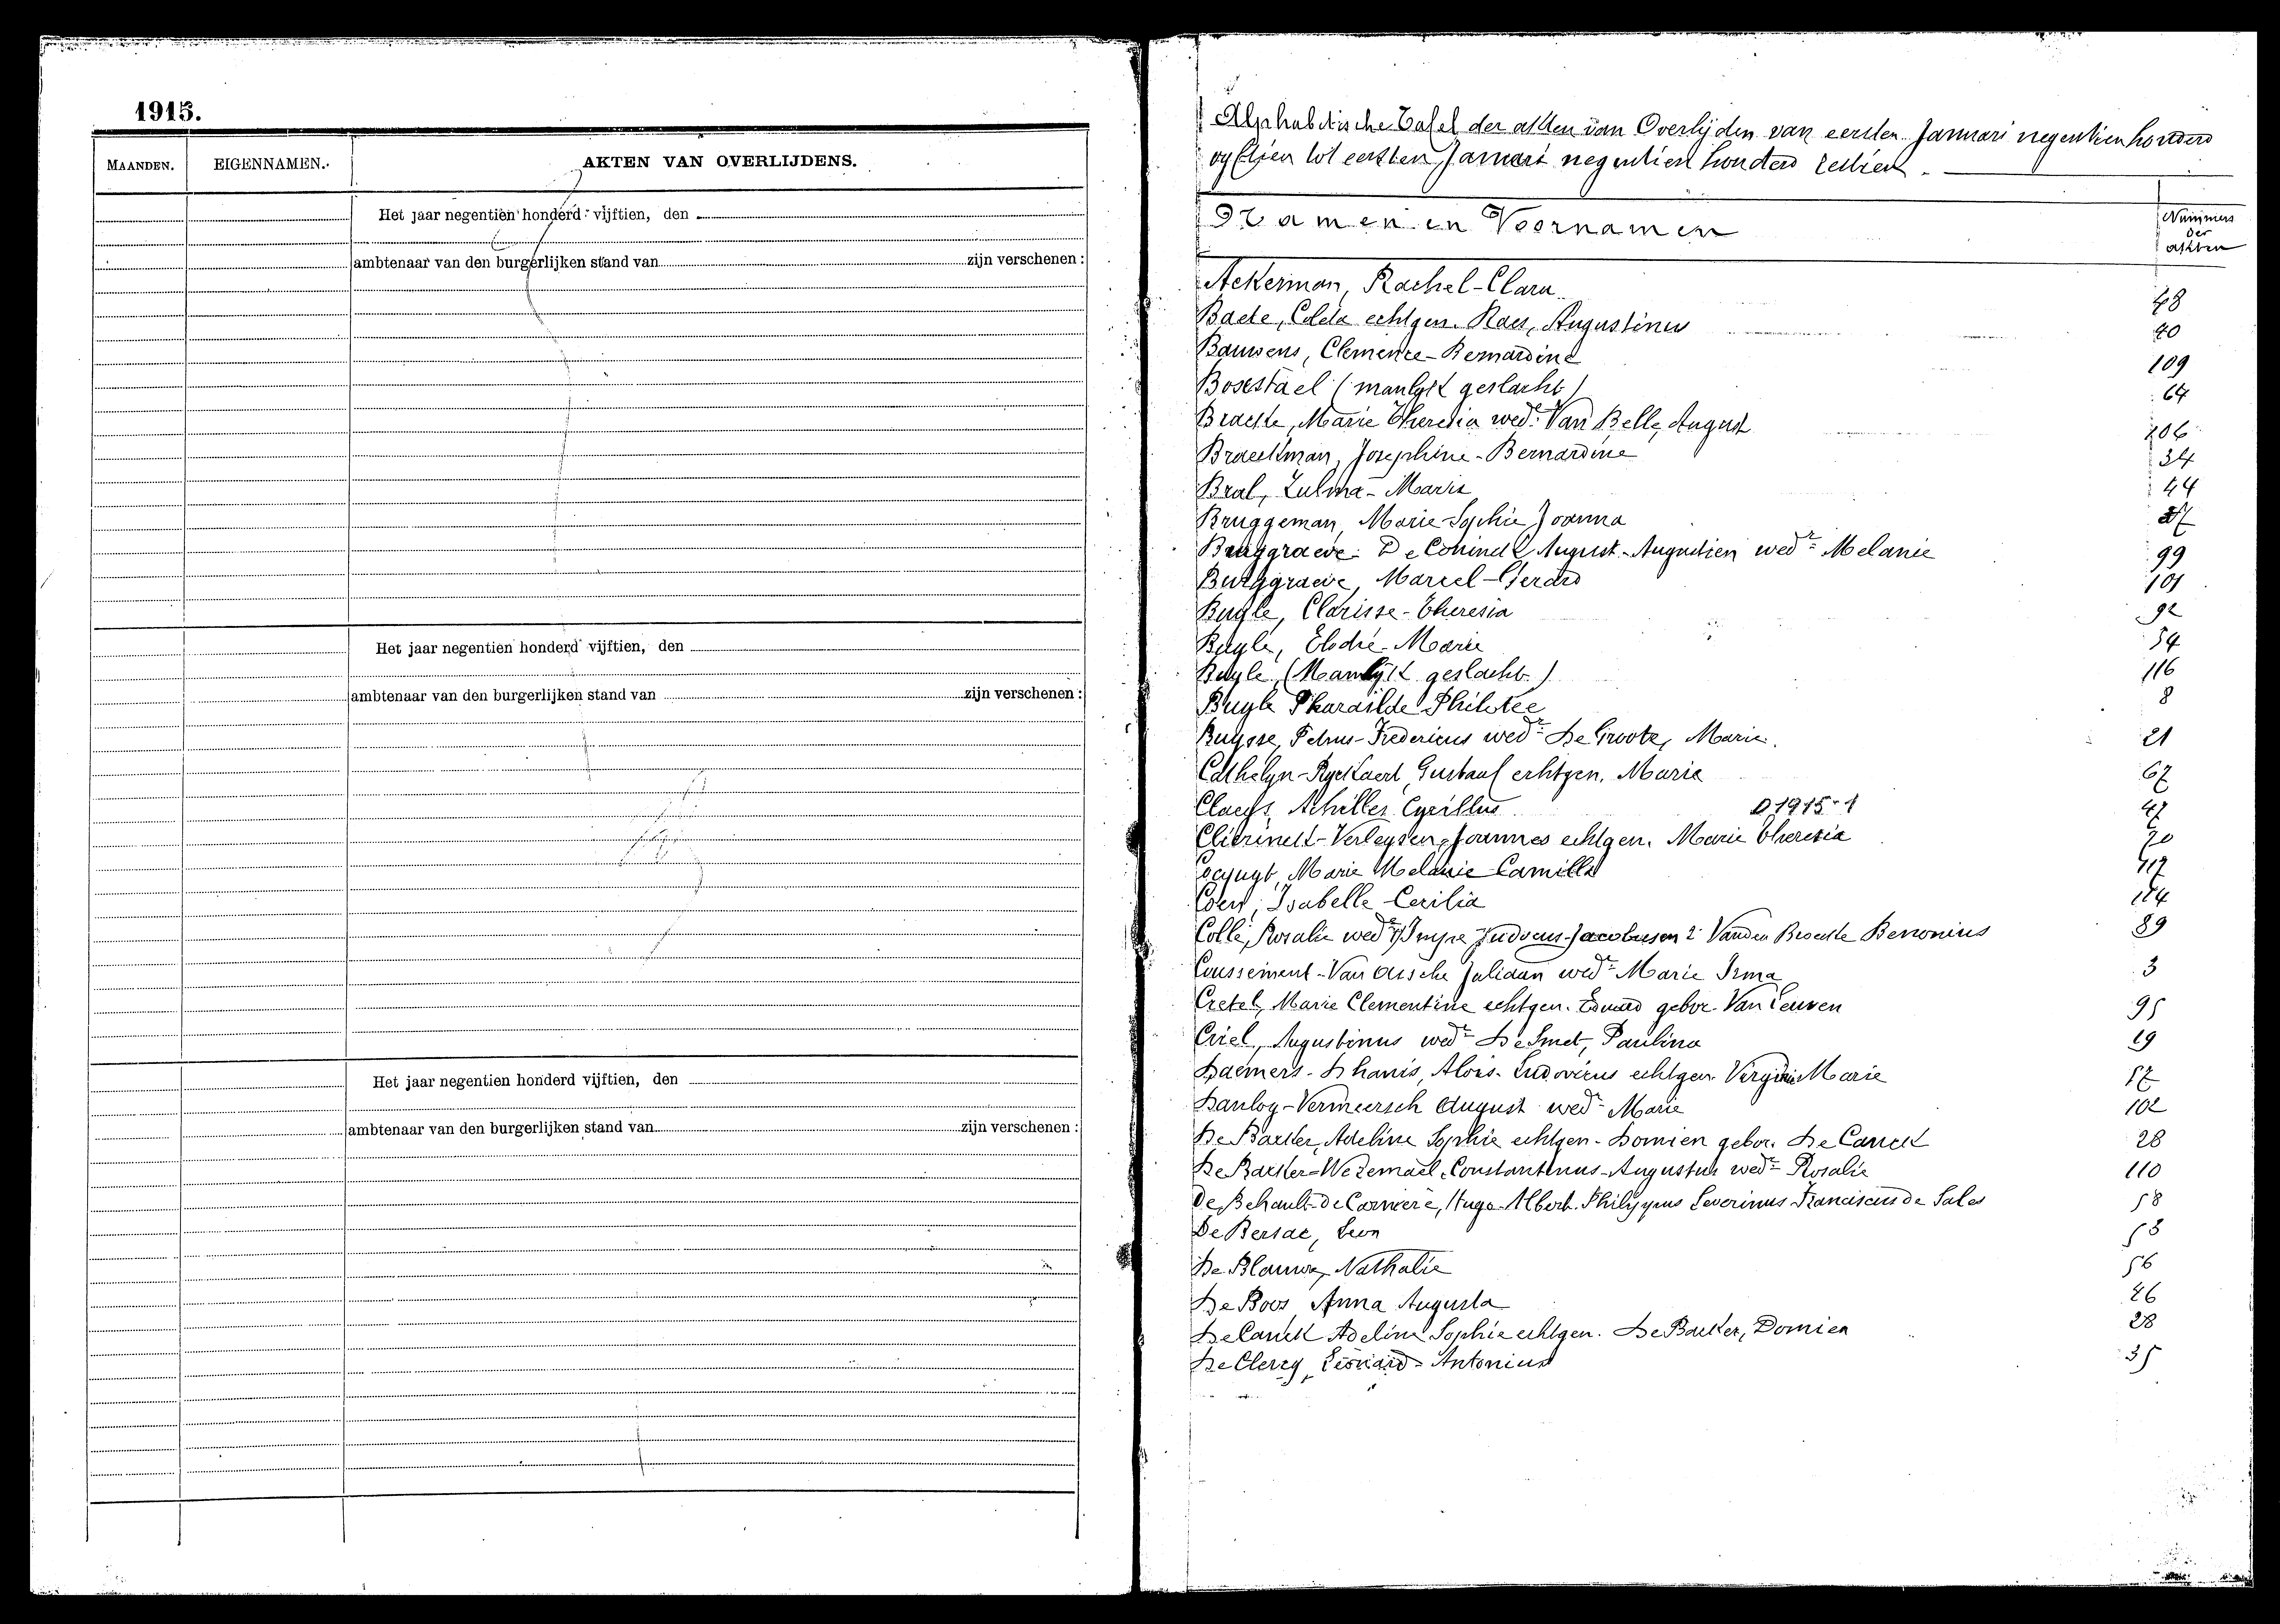 1915.
MAANDEN. EIGENNAMEN. AKTEN VAN OVERLIJDENS.
Het jaar negentien honderd vijftien, den
ambtenaar van den burgerlijken stand van zijn verschenen :
Het jaar negentien honderd vijftien, den
ambtenaar van den burgerlijken stand van zijn verschenen :
Het jaar negentien honderd vijftien, den
ambtenaar van den burgerlijken stand van zijn verschenen :
Alphabetische Tafel der akten van Overlijden van eersten Januari negentienhonderd
vyftien tot eersten Januari negentien honderd zestien.
Namen en Voornamen Nummers der akten
Ackerman, Rachel-Clara 48
Baete, Coleta echtgen. Raes, Augustinus 40
Bauwens, Clemence-Bernardine 109
Bosestael (manlyk geslacht) 64
Braeckle, Marie Theresia wed.e Van Belle, August 106
Braeckman, Josephine-Bernardine 34
Bral, Zulma-Marie 44
Bruggeman, Marie-Sophie Joanna
Burggraeve-De Coninck August-Augustien wed.r Melanie 99
Burggraeve, Marcel-Gerard 101
Buyle, Clarisse-Theresia 92
Buyle, Elodie-Marie 54
Buyle (Manlyk geslacht.) 116
Buyle Pharaïlde Philotee 8
Buysse, Petrus-Fredericus wed.r De Groote, Marie. 21
Cathelyn-Ryckaert, Gustaaf echtgen. Marie 67
Claeys, Achilles Cyrillus D 1915-1 47
Clierinck-Verleysen, Joannes echtgen. Marie Theresia 70
Marie Melanie Camilla 117
Coen, Isabelle Cecilia 114
Colle, Rosalie wed.e Judocus-Jacobus en 2. Vanden Broecke Benonius 89
Coussement-Van Assche Juliaan wed.r Marie Irma 3
Cretel, Marie Clementine echtgen. Eduard gebor. Van Leuven 95
Criel, Augustinus wed.r De Smet, Paulina 19
Daemers-Dhanis, Aloïs-Ludovicus echtgen. Virginie Marie 57
Vermeersch August wed.r Marie 102
De Backer, Adeline Sophie echtgen. Domien gebor. De Canck 28
De Backer-Wezemael, Constantinus-Augustus wed.r Rosalie 110
De Behault-de Carniere, Hugo-Albert-Philippus Severinus Franciscus de Sales 58
De Bersac, Leon
De Blauwe, Nathalie 56
De Boos Anna Augusta 26
De Canck Adeline Sophie echtgen. De Backer, Domien 28
De Clercq, Leonard-Antonius 35